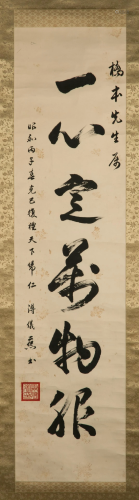 橋本先生属
一心定萬物服
昭和丙子春克己復禮天下歸仁 溥儀 书